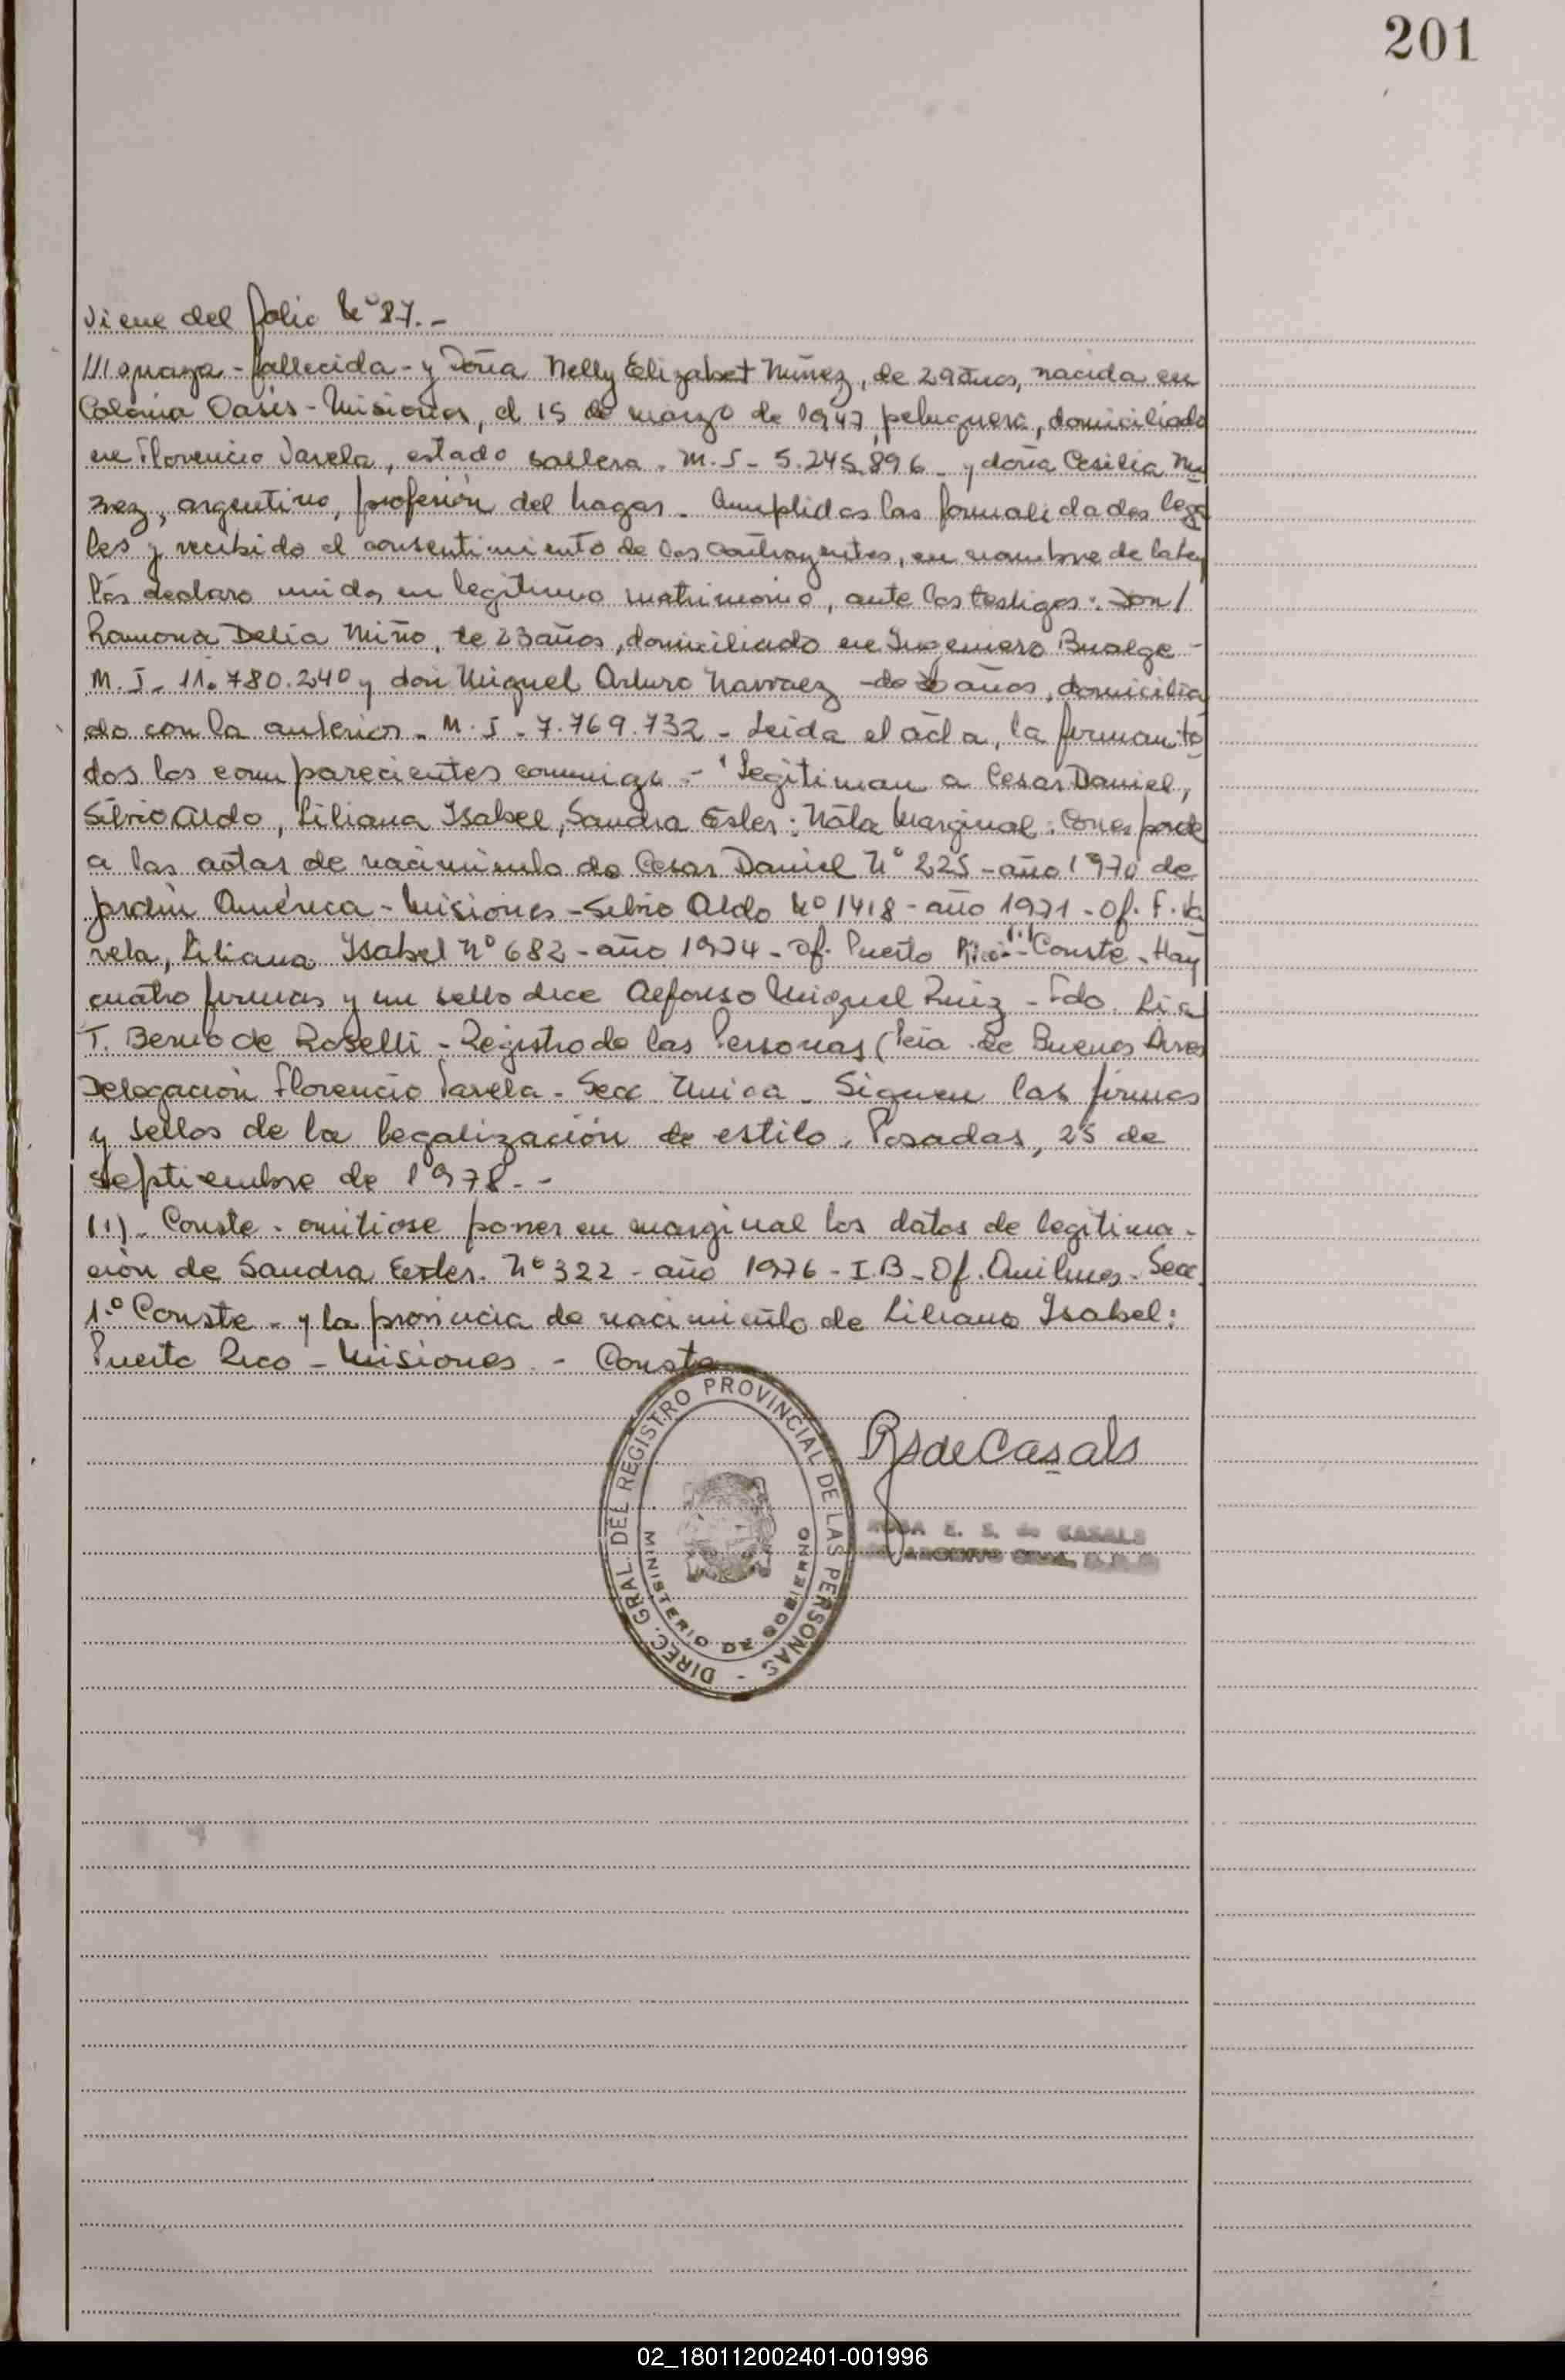 201
Viene del folio Nº 87.-
/// guaya - fallecida - y Doña Nelly Elizabet Núñez, de 29 años, nacida en
Colonia Oasis - Misiones, el 15 de marzo de 1947, peluquera, domiciliado
en Florencio Varela, estado soltera. M.I - 5.245.896 - y doña Cesilia Nu
ñez, argentino, profesión del hogar. Cumplidas las formalidades lega
les y recibido el consentimiento de los contrayentes, en nombre de la ley
los declaro unidos en legítimo matrimonio, ante los testigos: Don/
Ramona Delia Niño, de 23 años, domiciliado en Ingeniero Bualge -
M.I - 11.780.240 y don Miguel Arturo Narvaez - de años, domicilia
do con la anterior. M.I - 7.769.732 - Leida el acta, la firman to
dos los comparecientes conmigo - Legitiman a Cesar Daniel,
Silvio Aldo, Liliana Isabel, Sandra Ester: Nota Marginal: Corresponde
a las actas de nacimiento de Cesar Daniel Nº 225 - año 1970 de
Jardín América - Misiones - Silvio Aldo Nº 1418 - año 1971 - Of. F. Va
rela, Liliana Isabel Nº 682 - año 1974 - Of. Puerto Rico - Conste - Hay
cuatro firmas y un sello dice Alfonso Miguel Ruiz - Fdo. Lia
T. Berro de Roselli - Registro de las Personas (Pcia de Buenos Aires
Delegación Florencio Varela - Secc. Unica - Siguen las firmas
y sellos de la legalización de estilo. Posadas, 25 de
septiembre de 1978.-
(1) - Conste - omitiose poner en marginal los datos de legitima-
ción de Sandra Ester. Nº 322 - año 1976 - I.B - Of. Quilmes - Secc.
1.º Conste - y la provincia de nacimiento de Liliana Isabel:
Puerto Rico - Misiones. - Conste
DIREC. GRAL. DEL REGISTRO PROVINCIAL DE LAS PERSONAS -
MINISTERIO DE GOBIERNO
RS de Casals
ROSA E. S. de CASALS
02_180112002401-001996